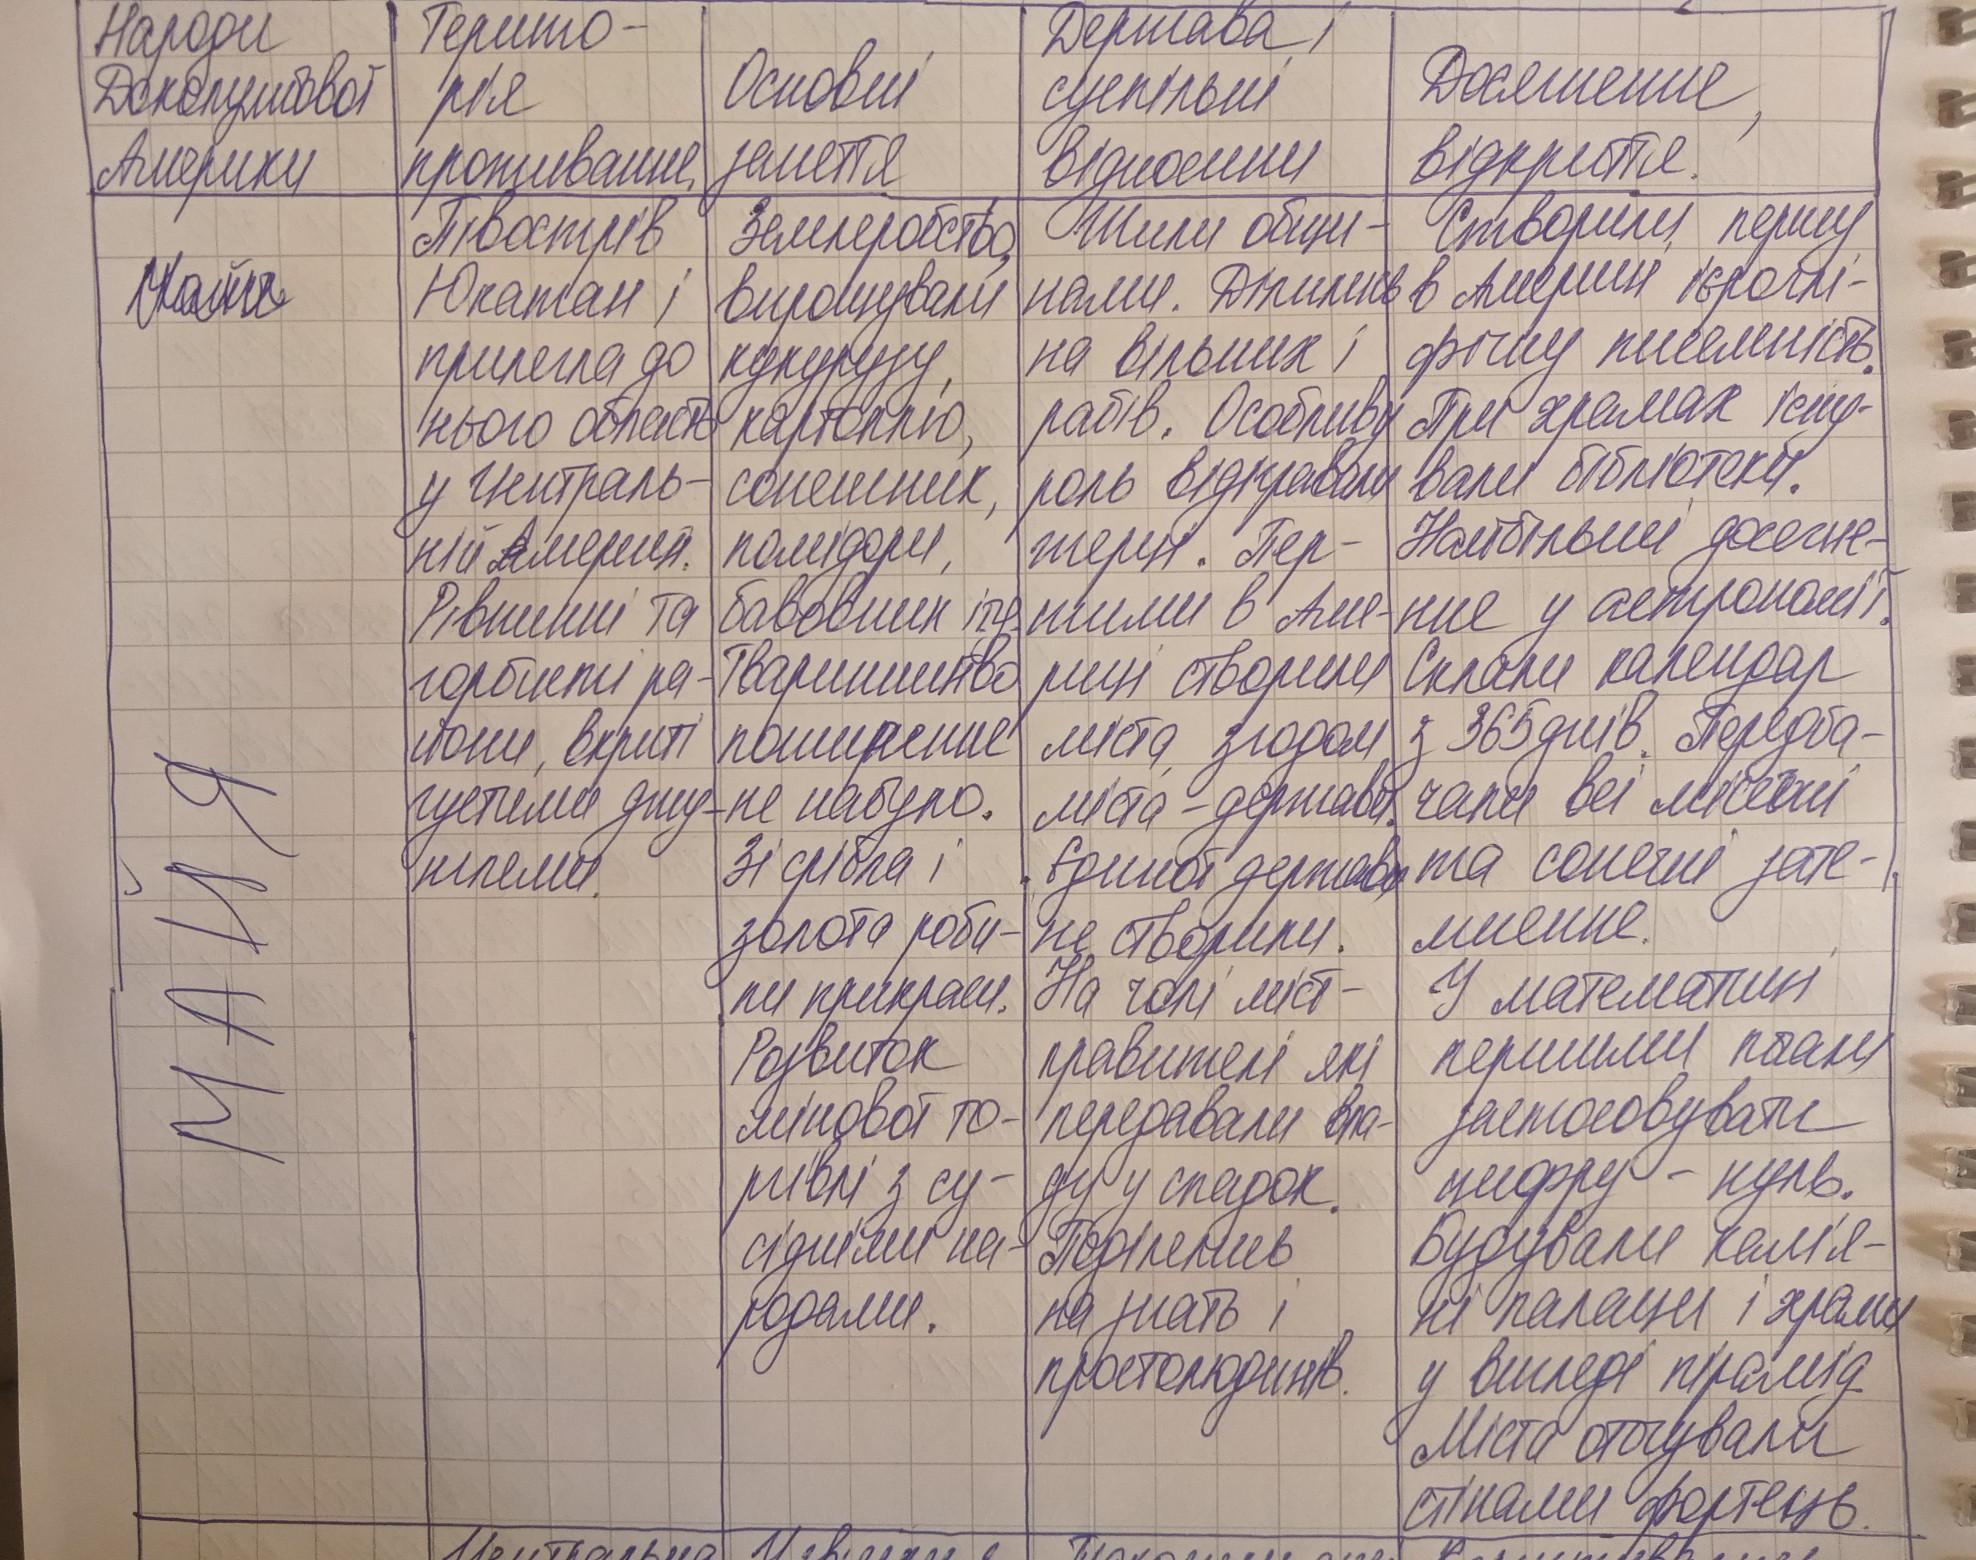 Народи
Доколумбової
Америки
Терито-
рія
проживання
Основні
заняття
Держава і
суспільні
відносини
Досягнення,
відкриття.
МАЙЯ
Півострів
Юкатан і
прилегла до
нього область
у Централь-
ній Америці.
Рівнинні та
горбисті ра-
йони, вкриті
густими джу-
нглями.
Землеробство,
вирощували
кукурудзу,
картоплю,
соняшник,
помідори,
бавовник
Тваринництво
поширення
не набуло.
Зі срібла і
золота роби-
ли прикраси.
Розвиток
мінової то-
ргівлі з су-
сідніми на-
родами.
Жили общи-
нами. Ділились
на вільних і
рабів. Особливу
роль відігравали
жерці. Пер-
шими в Аме-
риці створили
міста, згодом
міста-держави.
Єдиної держави
не створили.
На чолі міст-
правителі які
передавали вла-
ду у спадок.
Поділились
на знать і
простолюдинів.
Створили першу
в Америці ієрогліː
фічну писемність.
При храмах існу-
вали бібліотеки.
Найбільші досягне-
ння у астрономії.
Склали календар
з 365 днів. Передба-
чали всі місячні
та сонячні зате-
мнення.
У математиці
першими почали
застосовувати
цифру - нуль.
Будували кам'я-
ні палаци і храми
у вигляді пірамід
Міста оточували
стінами фортець.
Центральна